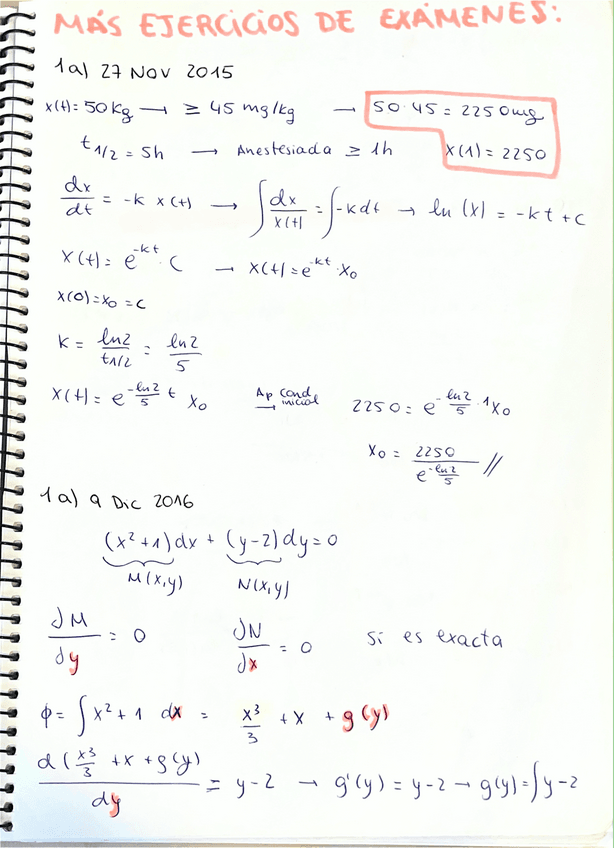 MÁS EJERCICIOS DE EXÁMENES:
1a) 27 NOV 2015
x(t) = 50 Kg → ≥ 45 mg/kg → 50·45 = 2250 mg
t1/2 = 5h → Anestesiada ≥ 1h x(1) = 2250
dx/dt = -k x(t) → ∫ dx/x(t) = ∫ -k dt → ln (x) = -kt + c
x(t) = e^-kt · C → x(t) = e^-kt · x0
x(0) = x0 = c
K = ln2/t1/2 = ln2/5
x(t) = e^(-ln2/5 t) x0 Ap cond inicial → 2250 = e^(-ln2/5 · 1) x0
x0 = 2250/e^(-ln2/5) //
1a) 9 Dic 2016
(x² + 1) dx + (y - 2) dy = 0
M(x,y) N(x,y)
∂M/∂y = 0 ∂N/∂x = 0 Si es exacta
ϕ = ∫ x² + 1 dx = x³/3 + x + g(y)
d(x³/3 + x + g(y)/dy = y - 2 → g'(y) = y - 2 → g(y) = ∫ y - 2